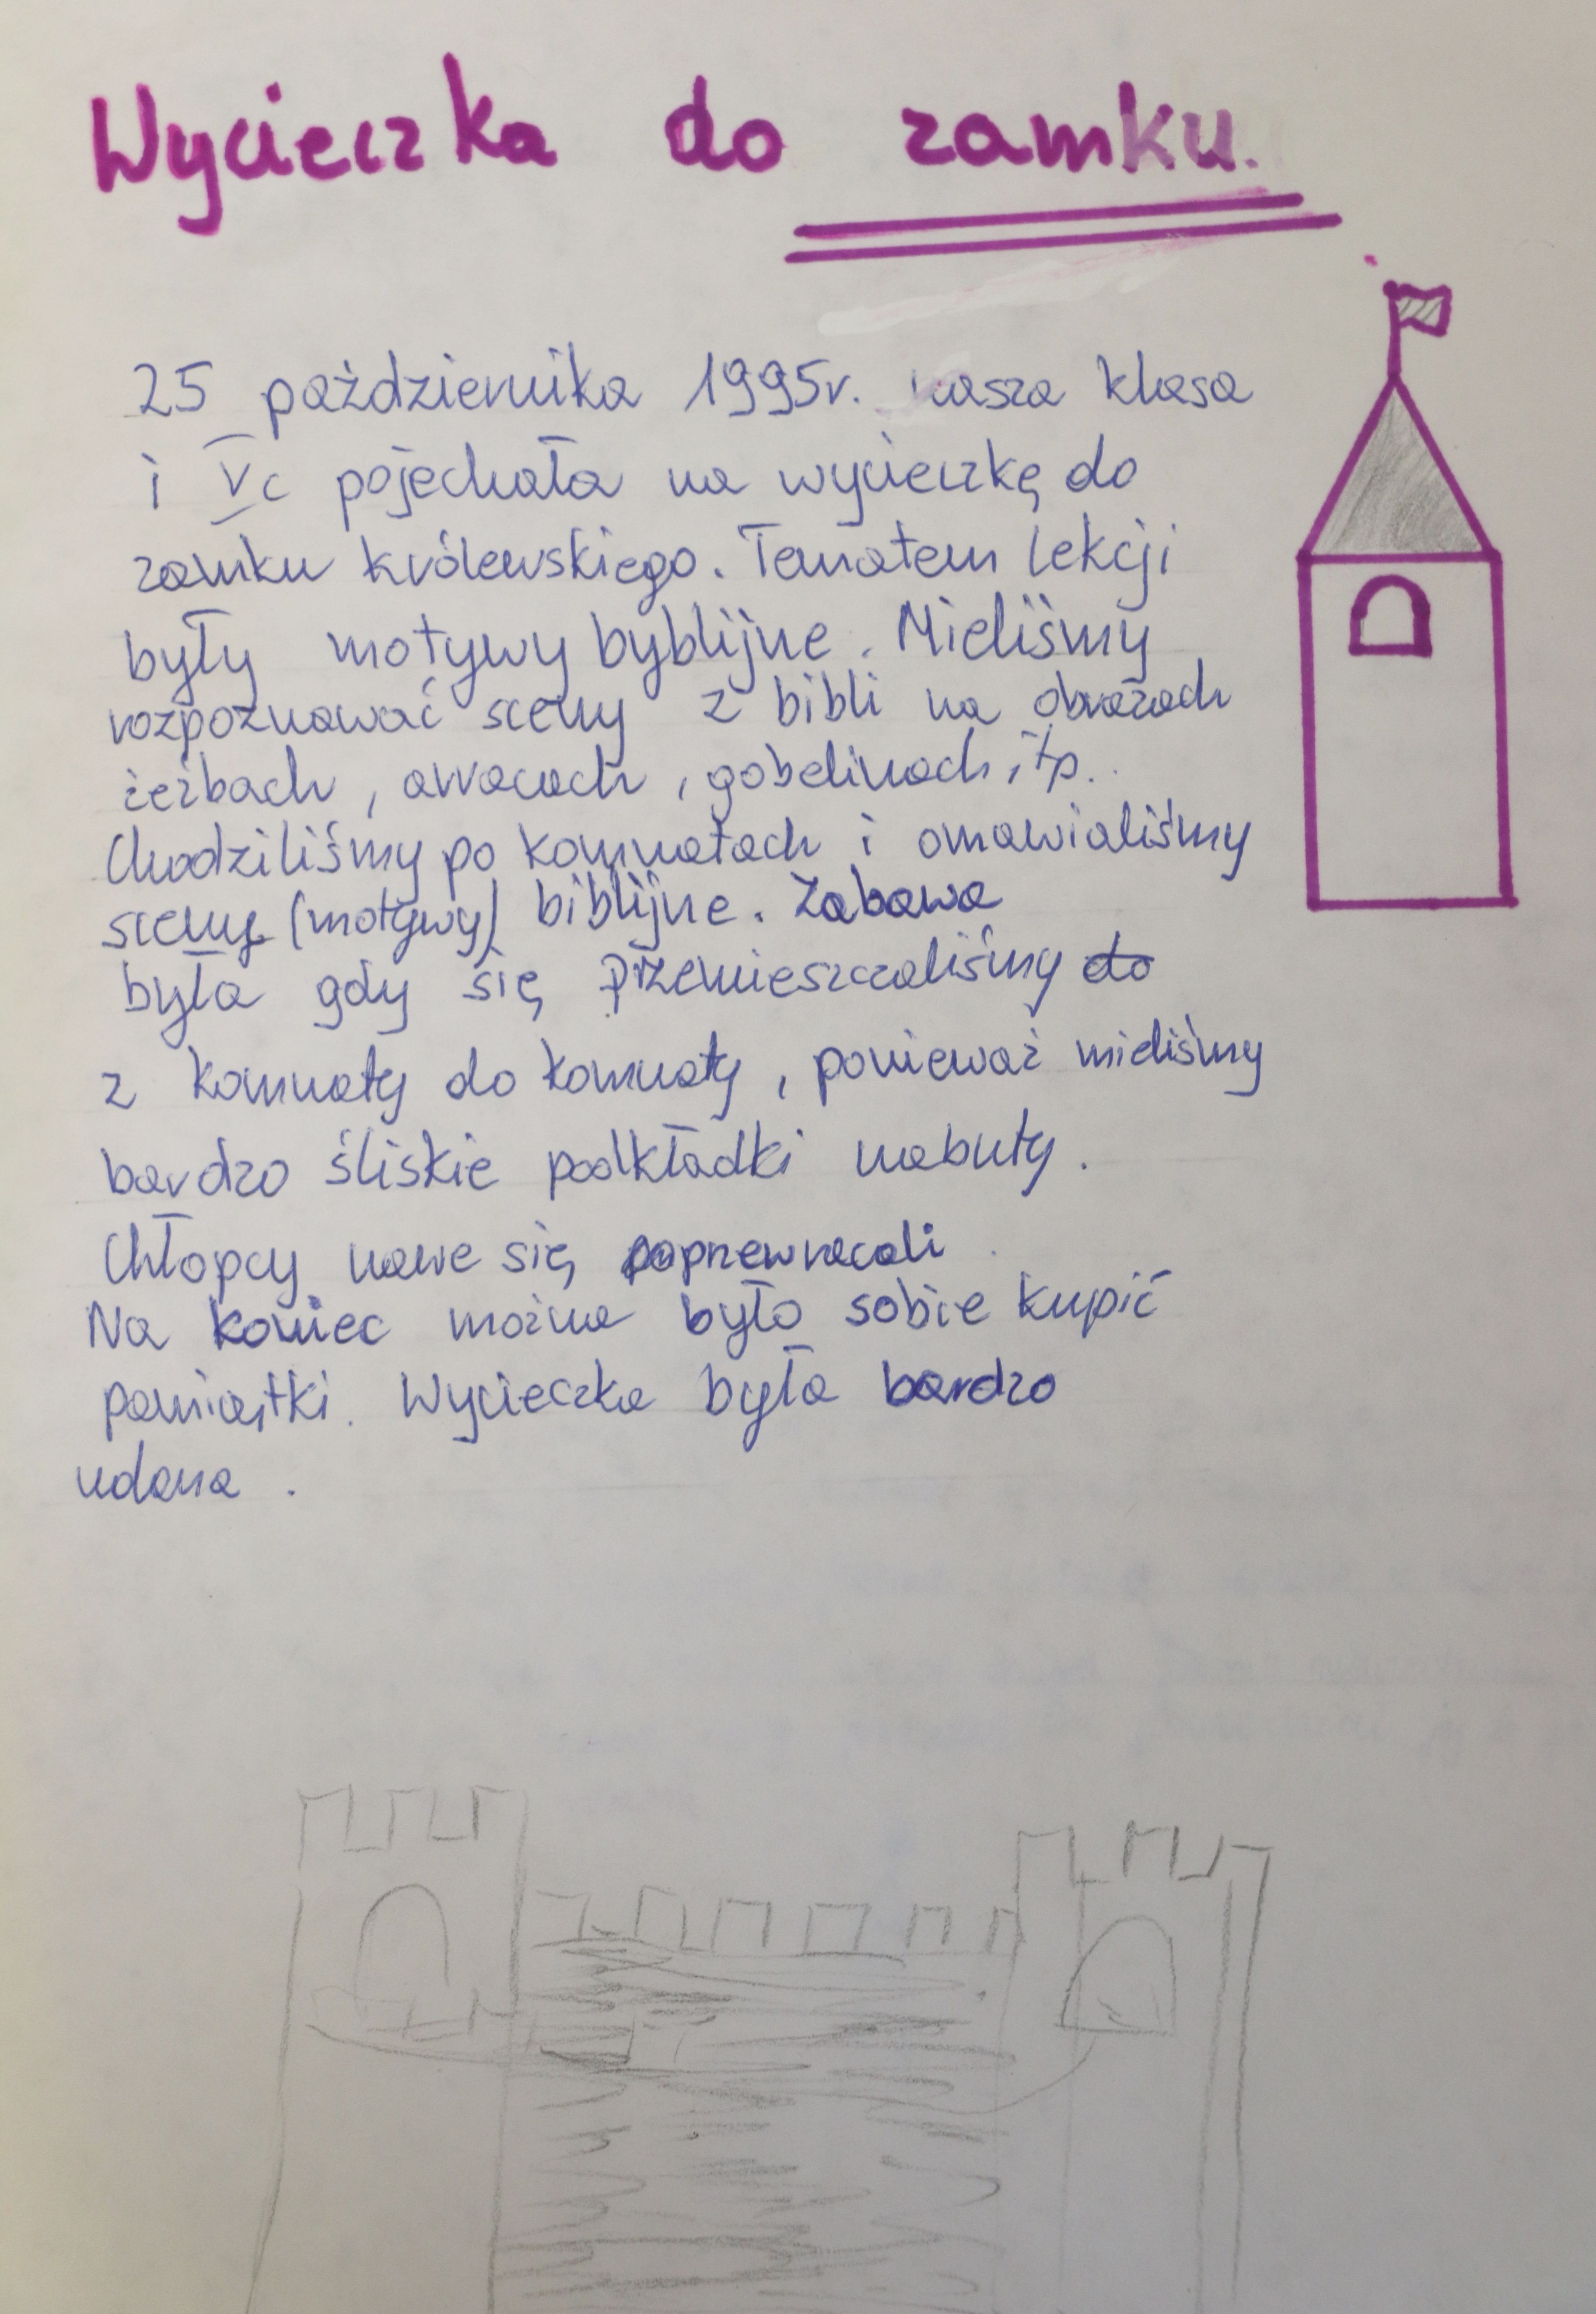 Wycieczka do zamku.
25 października 1995r. nasza klasa
i Vc pojechała na wycieczkę do
zamku królewskiego. Tematem lekcji
były motywy byblijne. Mieliśmy
rozpoznawać sceny z bibli na obrazach
żeźbach, arracach, gobelinach, itp..
Chodziliśmy po komnatach i omawialiśmy
sceny (motywy) biblijne. Zabawa
była gdy się przemieszczaliśmy do
z komnaty do komnaty, ponieważ mieliśmy
bardzo śliskie podkładki nabuty.
Chłopcy nawe się poprzewracali.
Na koniec można było sobie kupić
pamiątki. Wycieczka była bardzo
udana.